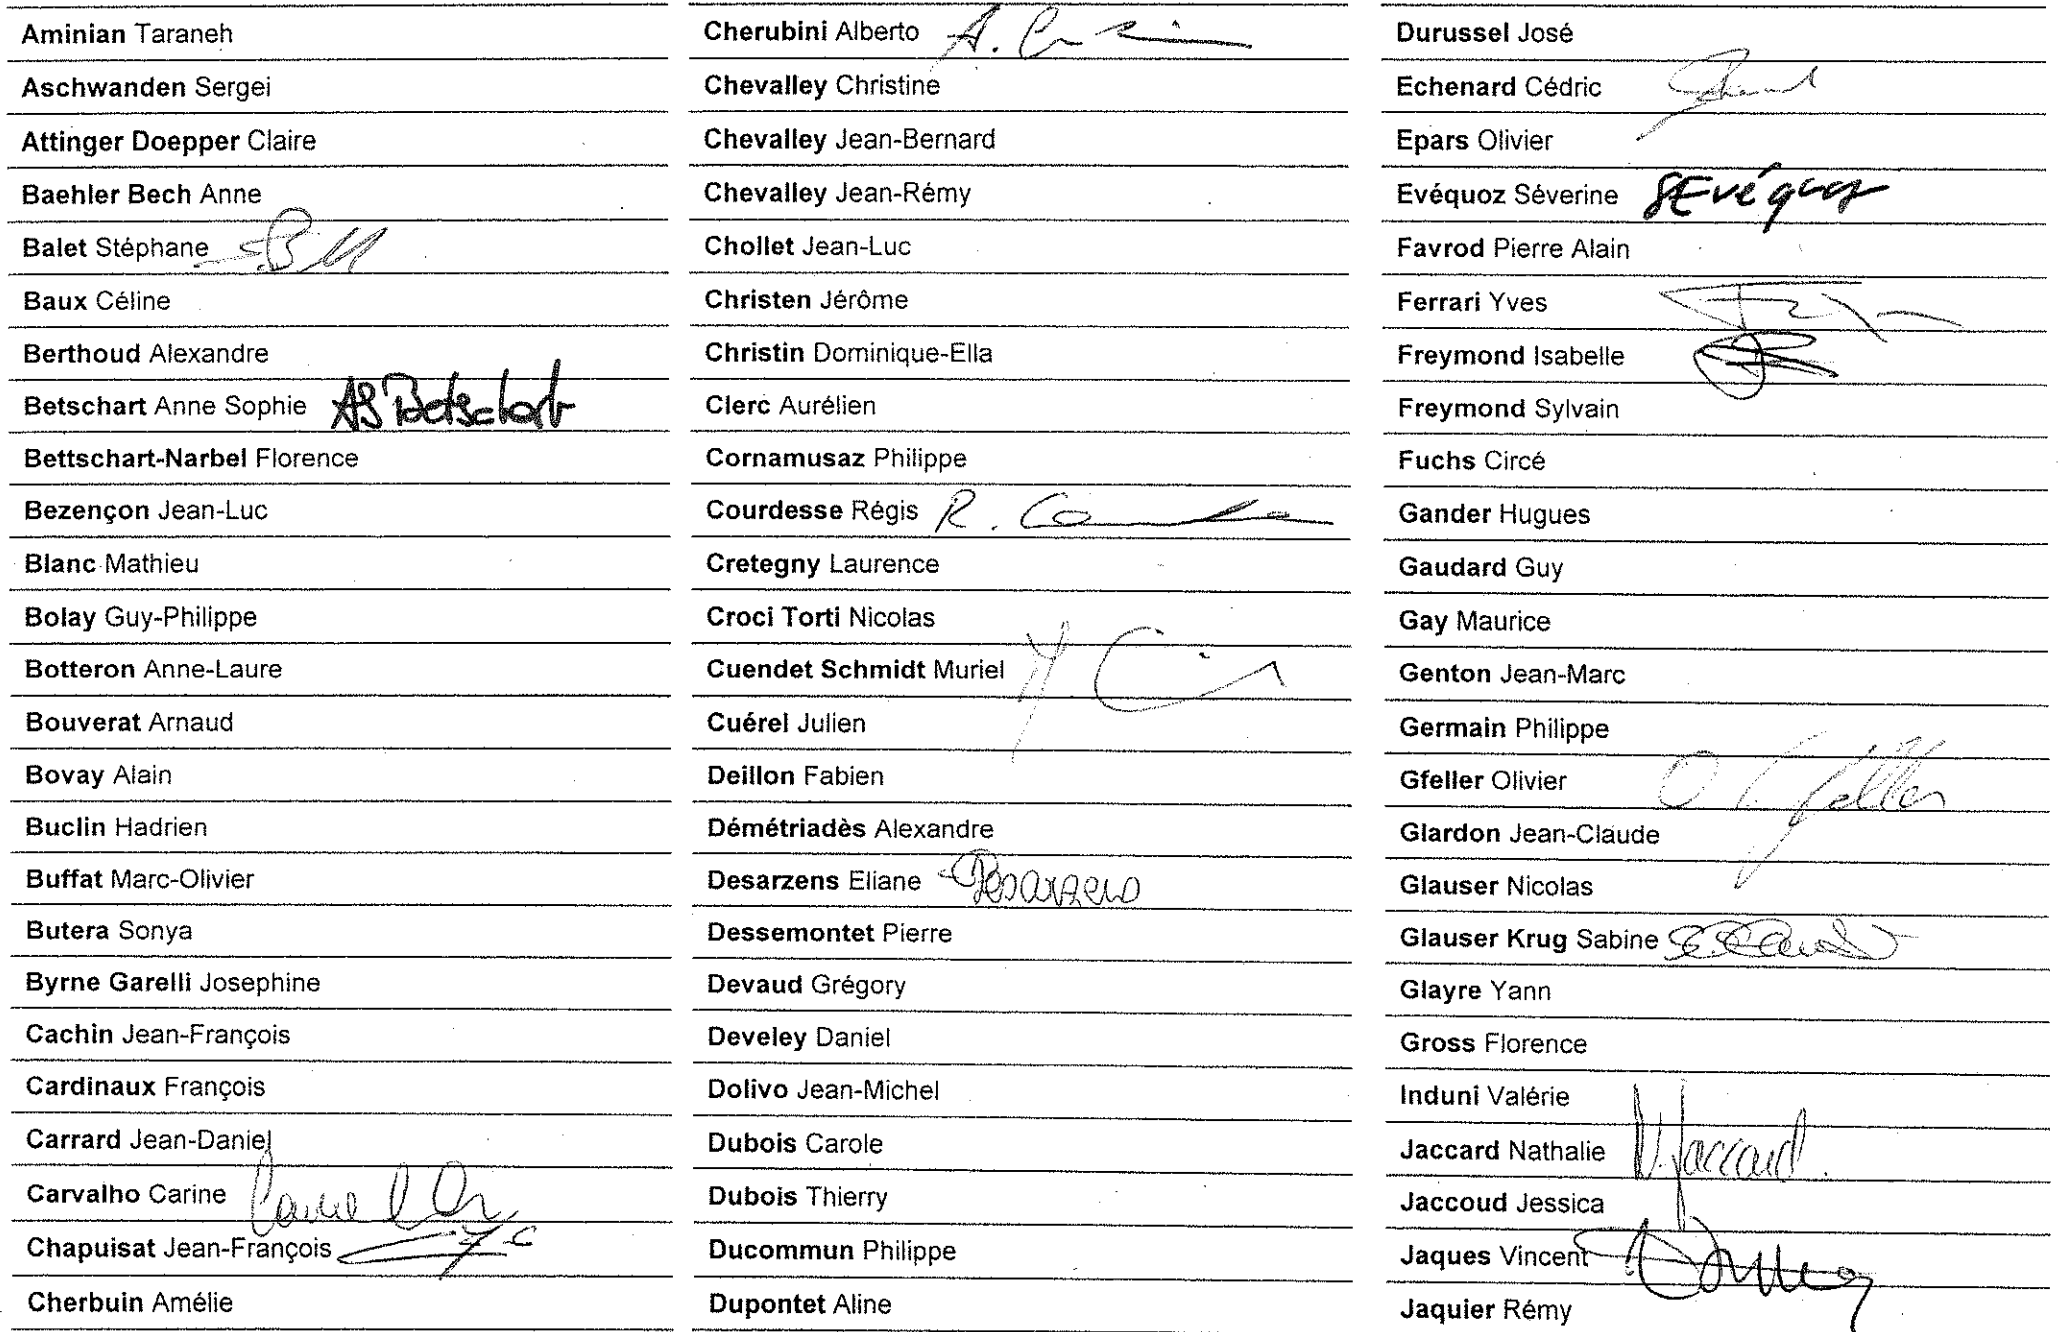 Aminian Taraneh
Aschwanden Sergei
Attinger Doepper Claire
Baehler Bech Anne
Balet Stéphane
Baux Céline
Berthoud Alexandre
Betschart Anne Sophie AS Betschart
Bettschart-Narbel Florence
Bezençon Jean-Luc
Blanc Mathieu
Bolay Guy-Philippe
Botteron Anne-Laure
Bouverat Arnaud
Bovay Alain
Buclin Hadrien
Buffat Marc-Olivier
Butera Sonya
Byrne Garelli Josephine
Cachin Jean-François
Cardinaux François
Carrard Jean-Daniel
Carvalho Carine
Chapuisat Jean-François
Cherbuin Amélie
Cherubini Alberto A.
Chevalley Christine
Chevalley Jean-Bernard
Chevalley Jean-Rémy
Chollet Jean-Luc
Christen Jérôme
Christin Dominique-Ella
Clerc Aurélien
Cornamusaz Philippe
Courdesse Régis R.
Cretegny Laurence
Croci Torti Nicolas
Cuendet Schmidt Muriel
Cuérel Julien
Deillon Fabien
Démétriadès Alexandre
Desarzens Eliane Desarzens
Dessemontet Pierre
Devaud Grégory
Develey Daniel
Dolivo Jean-Michel
Dubois Carole
Dubois Thierry
Ducommun Philippe
Dupontet Aline
Durussel José
Echenard Cédric
Epars Olivier
Evéquoz Séverine SEvéquoz
Favrod Pierre Alain
Ferrari Yves
Freymond Isabelle
Freymond Sylvain
Fuchs Circé
Gander Hugues
Gaudard Guy
Gay Maurice
Genton Jean-Marc
Germain Philippe
Gfeller Olivier O. Gfeller
Glardon Jean-Claude
Glauser Nicolas
Glauser Krug Sabine
Glayre Yann
Gross Florence
Induni Valérie
Jaccard Nathalie N. Jaccard
Jaccoud Jessica
Jaques Vincent
Jaquier Rémy